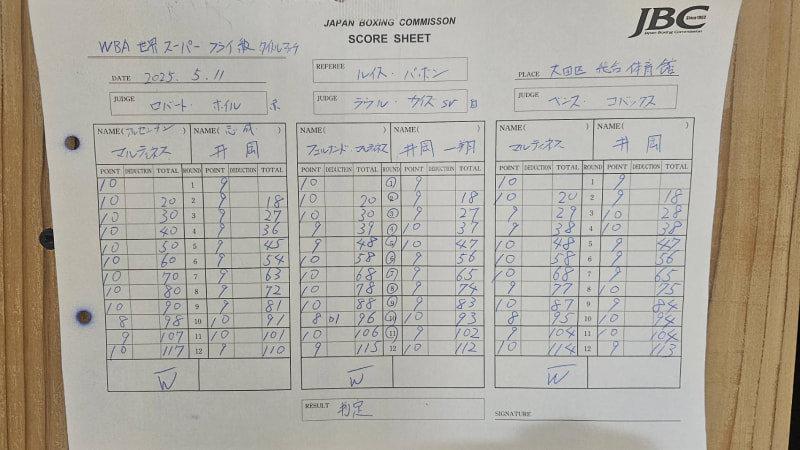 JAPAN BOXING COMMISSON
SCORE SHEET
JBC Since1952
Japan Boxing Commission
WBA 世界 スーパー フライ級 タイトルマッチ
DATE 2025. 5. 11
REFEREE ルイス・パボン
PLACE 大田区 総合体育館
JUDGE ロバート・ホイル
JUDGE ラウル・カイズ Sr
JUDGE ベンス・コバックス
NAME(アルゼンチン) NAME(志成) NAME( ) NAME( ) NAME( ) NAME( )
マルティネス 井岡 フェルナンド・マルティネス 井岡 一翔 マルティネス 井岡
POINT DEDUCTION TOTAL ROUND POINT DEDUCTION TOTAL POINT DEDUCTION TOTAL ROUND POINT DEDUCTION TOTAL POINT DEDUCTION TOTAL ROUND POINT DEDUCTION TOTAL
10 1 9 10 1 9 10 1 9
10 20 2 9 18 10 20 2 9 18 10 20 2 9 18
10 30 3 9 27 10 30 3 9 27 9 29 3 10 28
10 40 4 9 36 9 39 4 10 37 9 38 4 10 38
10 50 5 9 45 9 48 5 10 47 10 48 5 9 47
10 60 6 9 54 10 58 6 9 56 10 58 6 9 56
10 70 7 9 63 10 68 7 9 65 10 68 7 9 65
10 80 8 9 72 10 78 8 9 74 9 77 8 10 75
10 90 9 9 81 10 88 9 9 83 10 87 9 9 84
8 98 10 10 91 8 96 10 10 93 8 95 10 10 94
9 107 11 10 101 10 106 11 9 102 9 104 11 10 104
10 117 12 9 110 9 115 12 10 112 10 114 12 9 113
W W W
RESULT 判定
SIGNATURE